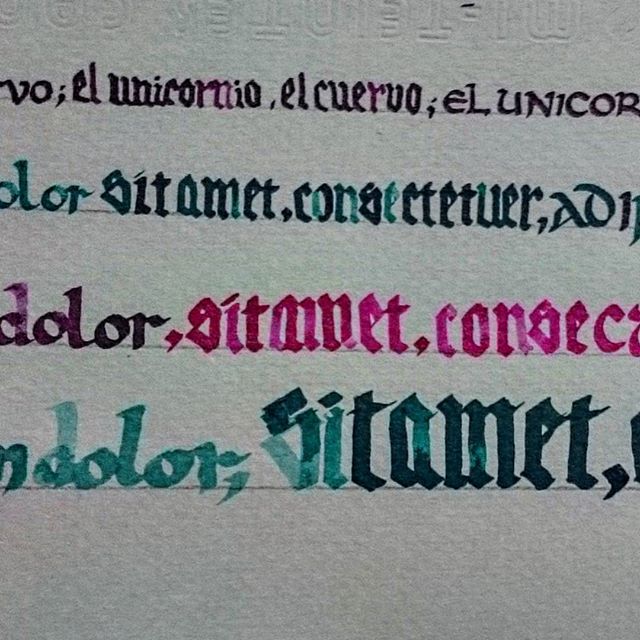 rvo; el unicornio, el cuervo; EL UNICOR
olor sit amet, consectetuer, adip
dolor, sit amet, consect
m dolor, sit amet,